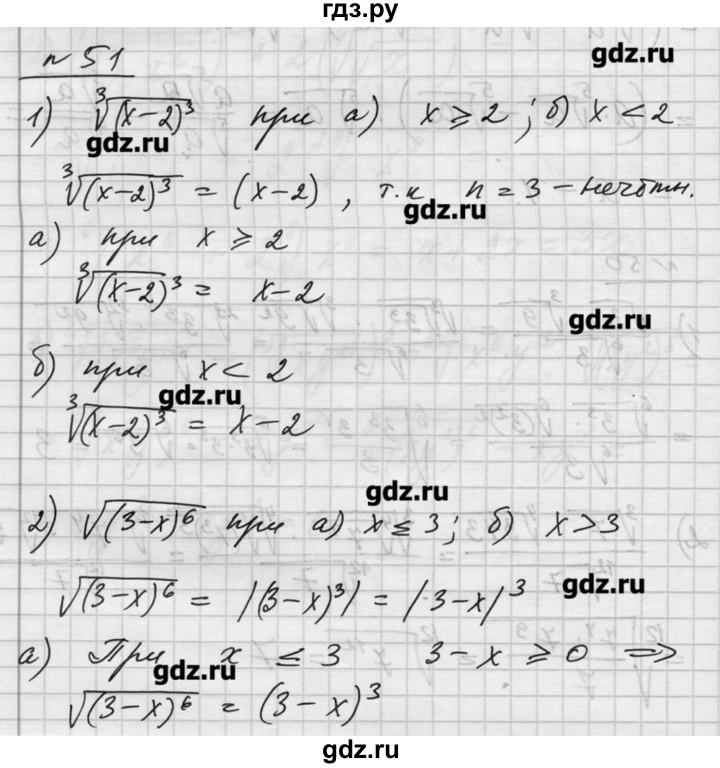 гдз.ру
gdz.ru
n 51
1) ∛(x-2)³ при а) x ≥ 2 ; б) x < 2
gdz.ru
∛(x-2)³ = (x-2) , т.к n = 3 - нечётн.
gdz.ru
а) при x ≥ 2
∛(x-2)³ = x-2
gdz.ru
б) при x < 2
gdz.ru
∛(x-2)³ = x-2
gdz.ru
2) √(3-x)⁶ при а) x ≤ 3 ; б) x > 3
gdz.ru
√(3-x)⁶ = |(3-x)³| = |3-x|³
а) При x ≤ 3 3-x ≥ 0 ⇒
gdz.ru
√(3-x)⁶ = (3-x)³
gdz.ru